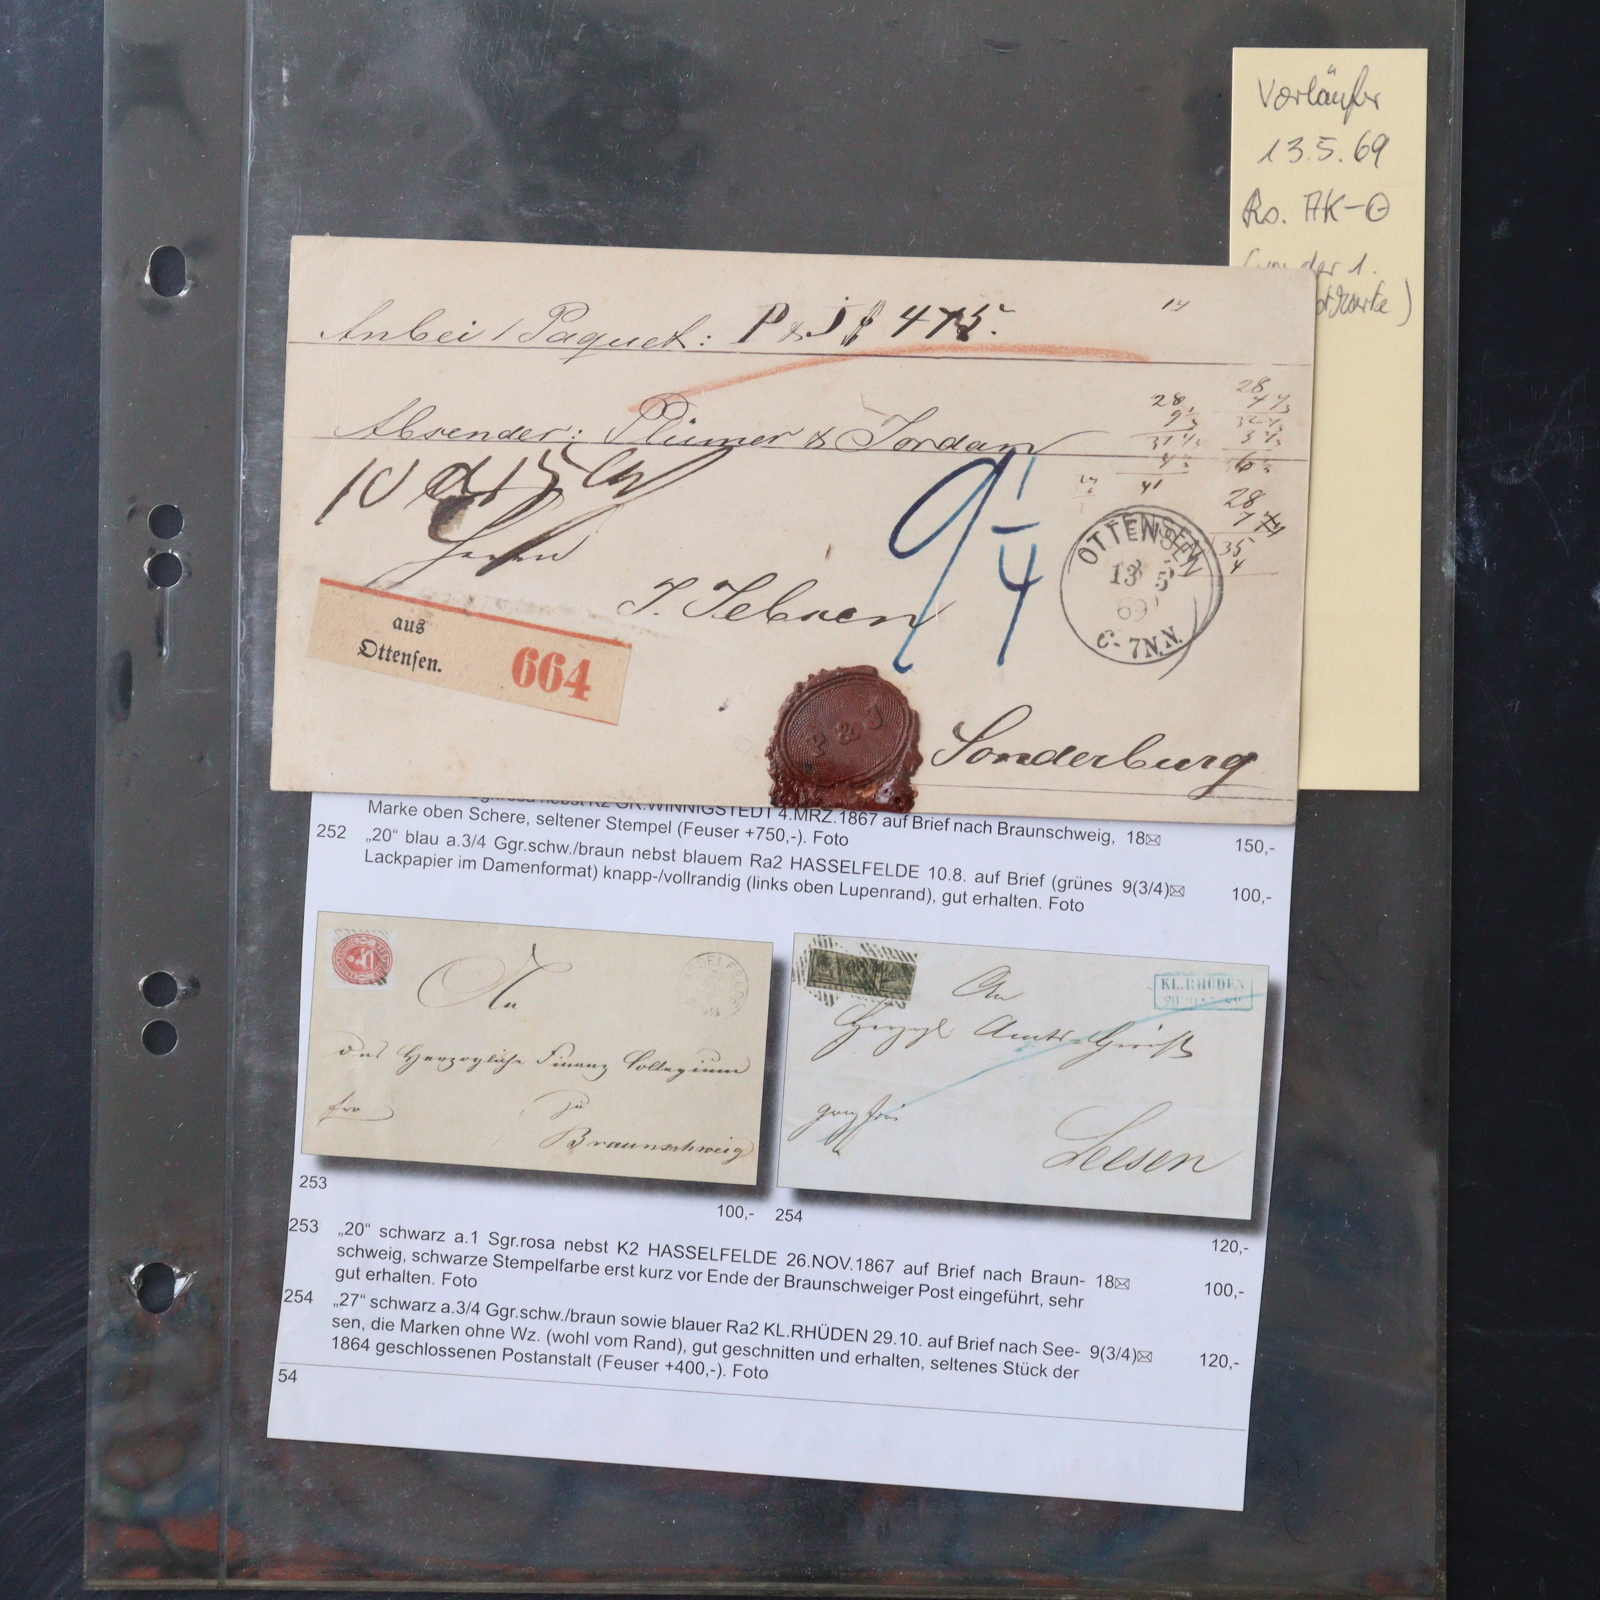 Vorläufer
13.5.69
Rs. AK-O
der 1.
Anbei 1 Paquet: P & J # 475.
14
Absender: Plümer & Jordan
28
41
28
28
35
4
Herrn
9 1/4
J. Jebsen
OTTENSEN
13 5
69
C- 7 N.N.
aus
Ottensen.
664
P & J
Sonderburg
GR.WINNIGSTEDT 4.MRZ.1867 auf Brief nach Braunschweig, 18✉
Marke oben Schere, seltener Stempel (Feuser +750,-). Foto 150,-
252 „20“ blau a.3/4 Ggr.schw./braun nebst blauem Ra2 HASSELFELDE 10.8. auf Brief (grünes 9(3/4)✉
Lackpapier im Damenformat) knapp-/vollrandig (links oben Lupenrand), gut erhalten. Foto 100,-
An
das Herzogliche Finanz Collegium
fro zu
Braunschweig
An
KL.RHÜDEN
Herzogl Amts-Gericht
Seesen
253
100,- 254
120,-
253 „20“ schwarz a.1 Sgr.rosa nebst K2 HASSELFELDE 26.NOV.1867 auf Brief nach Braun- 18✉
schweig, schwarze Stempelfarbe erst kurz vor Ende der Braunschweiger Post eingeführt, sehr 100,-
gut erhalten. Foto
254 „27“ schwarz a.3/4 Ggr.schw./braun sowie blauer Ra2 KL.RHÜDEN 29.10. auf Brief nach See- 9(3/4)✉
sen, die Marken ohne Wz. (wohl vom Rand), gut geschnitten und erhalten, seltenes Stück der 120,-
1864 geschlossenen Postanstalt (Feuser +400,-). Foto
54